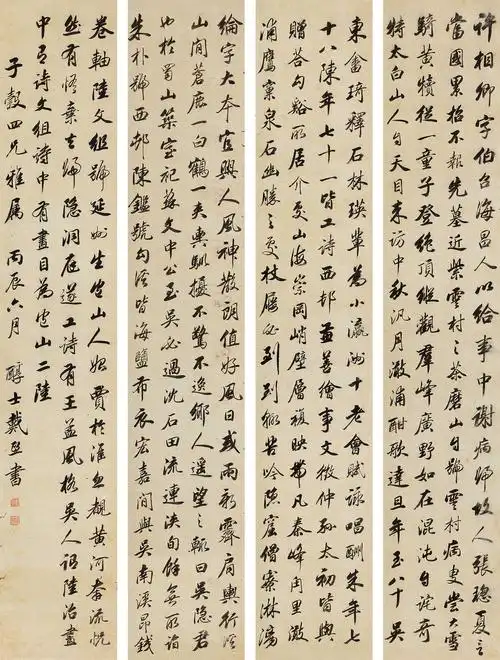 許相卿字伯台海昌人以給事中謝病歸故人張璁夏言
當國累招不報先墓近紫雲村之茶磨山自號雲村病叟嘗大雪
騎黃犢從一童子登絕頂縱觀群峰廣野如在混沌自詫奇
特太白山人自天目來訪中秋汎月澉浦酣歌達旦年至八十吳
綸字大本官與人風神散朗值好風日或雨新霽肩輿行溪
山間蒼鹿一白鶴一夾輿馴擾不驚不逸鄉人遙望之輒曰吳隱君
也於蜀山築室祀蘇文中公至吳必過沈石田流連浹旬餘無所詣
朱朴號西邨陳鑑號勾溪皆海鹽布衣宏嘉間與吳南溪昂錢
東畬琦釋石林瑛輩為小瀛洲十老會賦詠唱酬朱年七
十八陳年七十一皆工詩西邨並善繪事文徵仲孫太初皆與
贈荅勾谿所居介處山海崇岡峭壁層複映帶凡秦峰周里澉
浦鷹窠泉石幽勝之處杖屨必到到輒苦吟窟僧寮淋漓
卷軸陸文組號延州生包山人始賈於淮覩黃河奔流恍
然有悟棄去歸隱洞庭遂工詩有王孟風格吳人謂陸治畫
中有詩文組詩中有畫目為包山二陸
子穀四兄雅屬 丙辰六月 醇士戴熙書